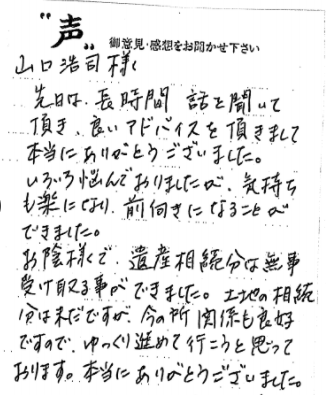 "声" 御意見・感想をお聞かせ下さい
山口浩司様へ
先日は、長時間 話を聞いて
頂き、良いアドバイスを頂きまして
本当にありがとうございました。
いろいろ悩んでおりましたが、気持ち
も楽になり、前向きになることが
できました。
お陰様で、遺産相続分は無事
受け取る事ができました。土地の相続
分は未だですが、今の所 関係も良好
ですので、ゆっくり進めて行こうと思って
おります。本当にありがとうございました。